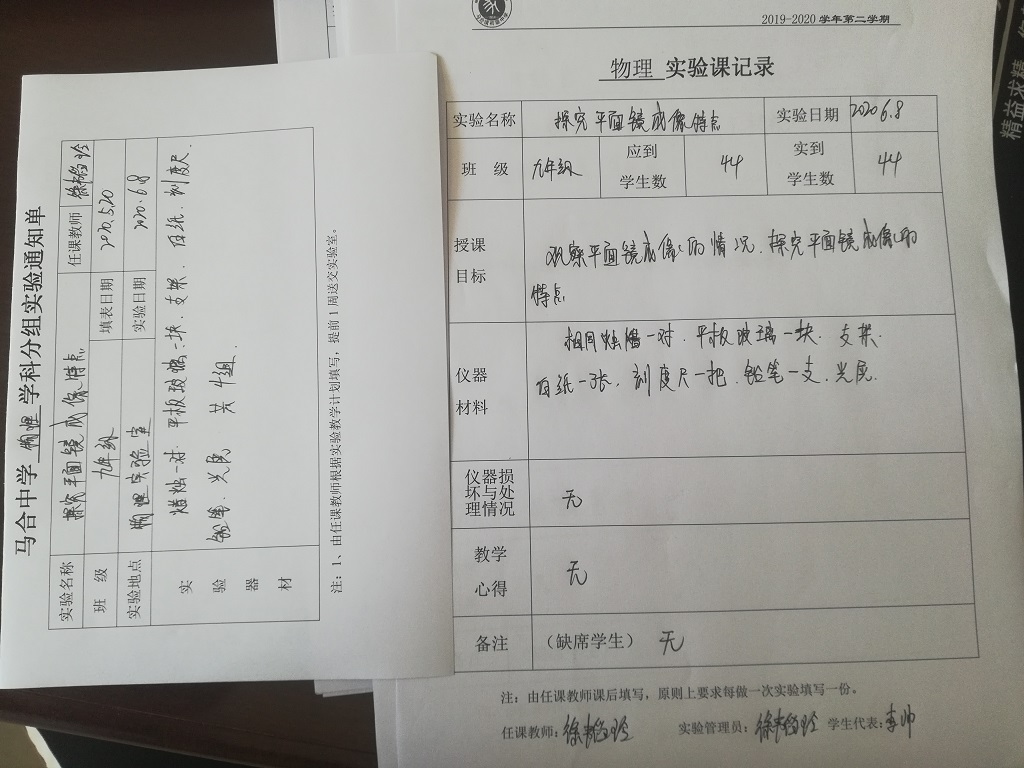 马合中学 物理 学科分组实验通知单
实验名称 探究平面镜成像特点 任课教师
班 级 九年级 填表日期 2020.5.20
实验地点 物理实验室 实验日期 2020.6.8
实验器材 蜡烛一对.平板玻璃一块.支架.白纸.刻度尺.
铅笔.光屏 共 组.
注：1、由任课教师根据实验教学计划填写，提前1周送交实验室。
2019-2020 学年第二学期
物理 实验课记录
实验名称 探究平面镜成像特点 实验日期 2020 6.8
班 级 九年级 应到学生数 44 实到学生数 44
授课目标 观察平面镜成像的情况.探究平面镜成像的
特点
仪器材料 相同蜡烛一对.平板玻璃一块.支架.
白纸一张,刻度尺一把.铅笔一支.光屏.
仪器损坏与处理情况 无
教学心得 无
备注 （缺席学生） 无
注：由任课教师课后填写，原则上要求每做一次实验填写一份。
任课教师: 实验管理员: 学生代表:李帅
精益求精